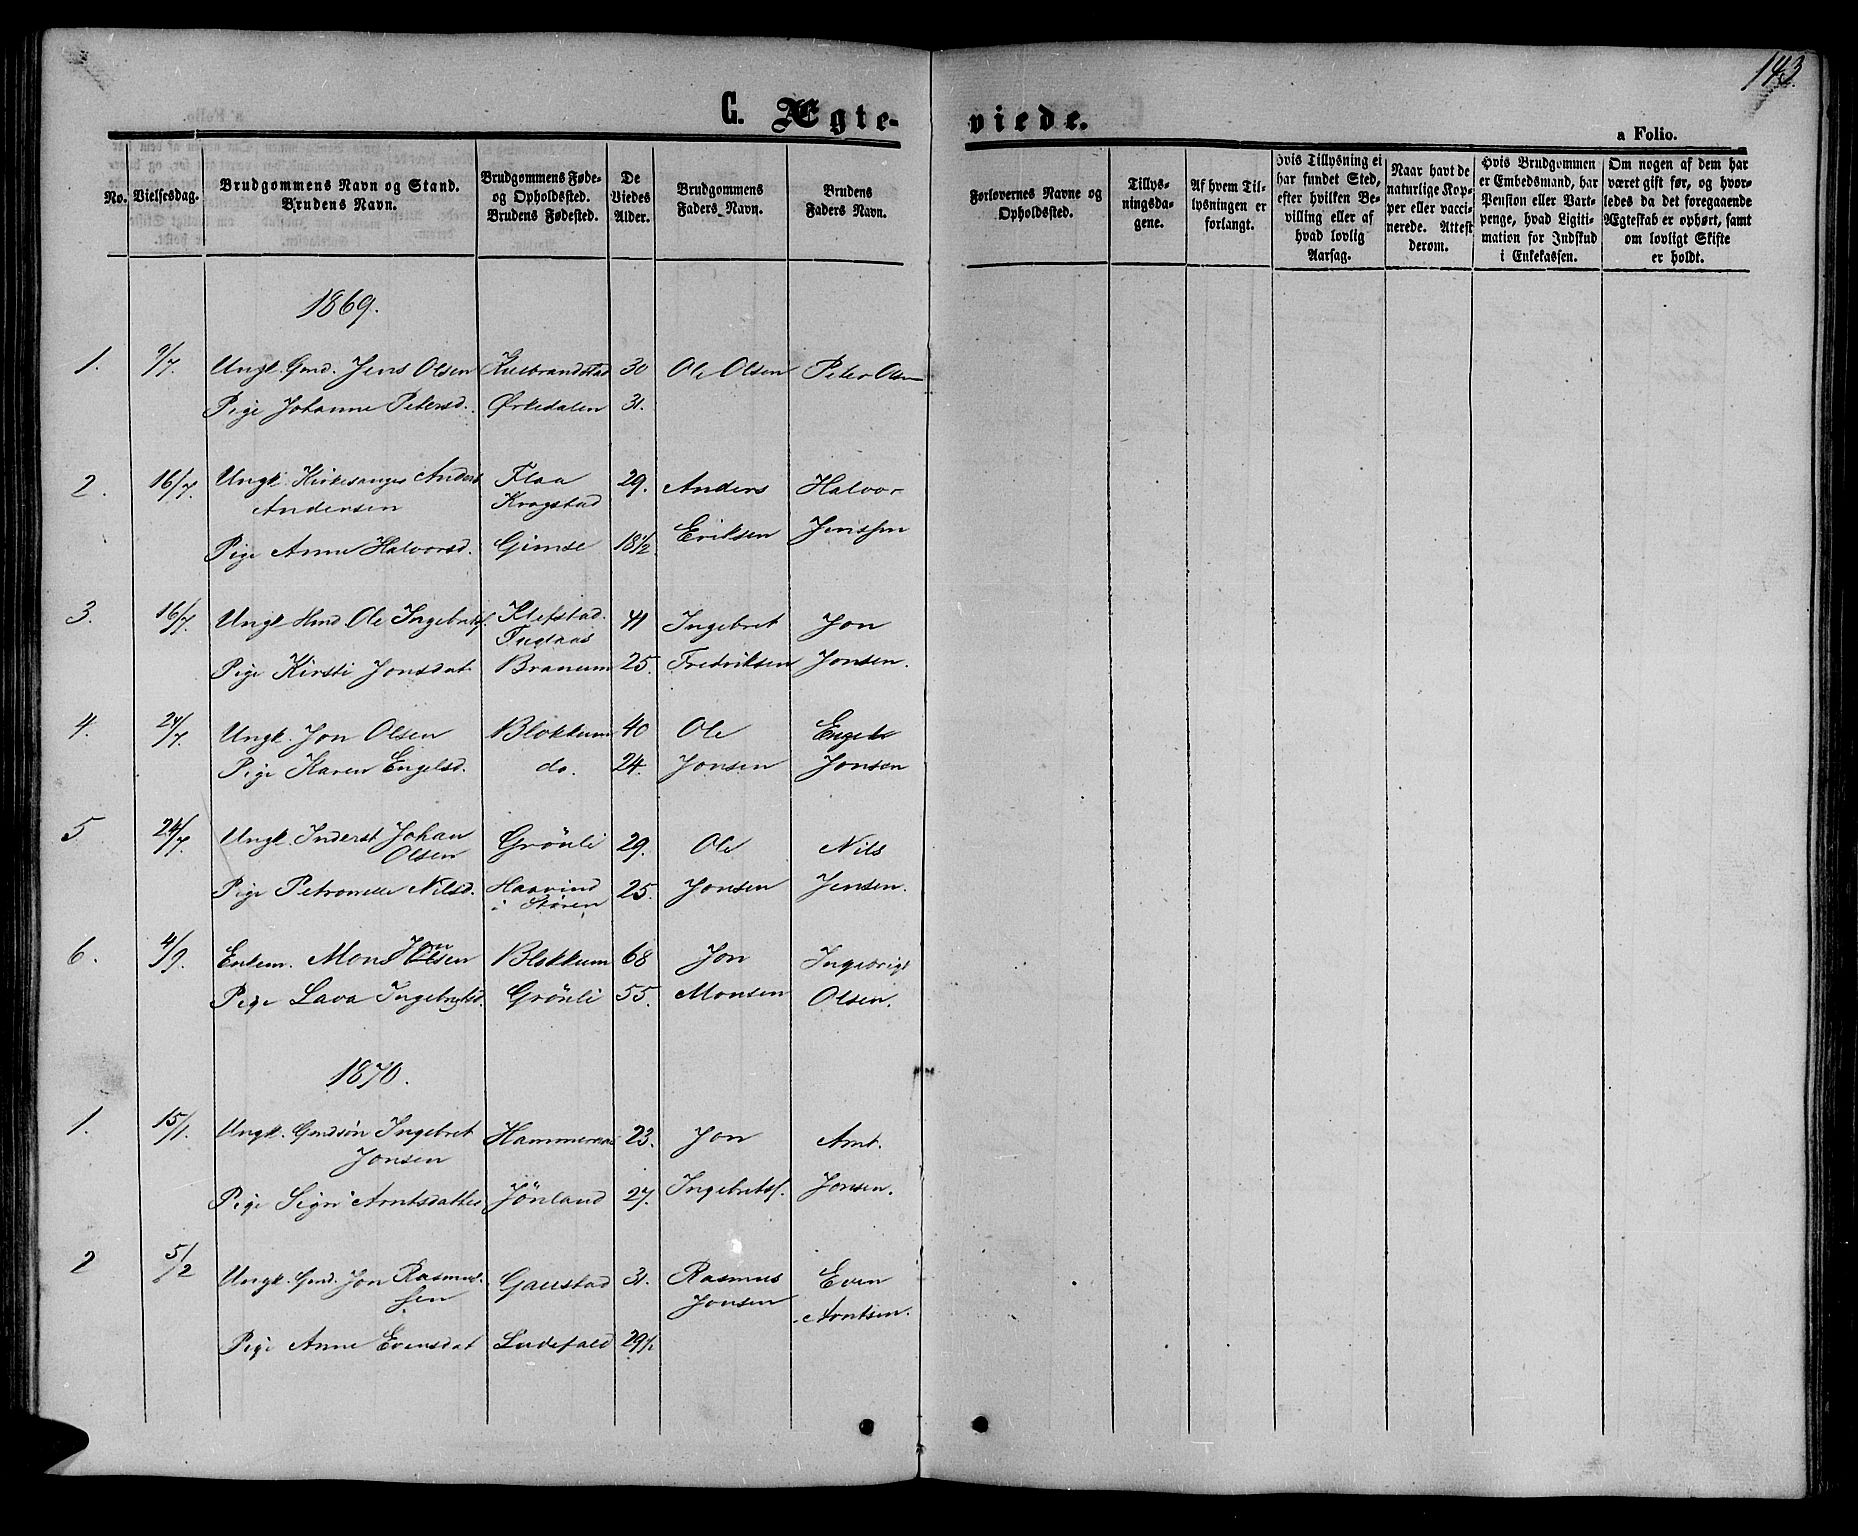 143.
G. Ægte-
viede.
a Folio.
No.
Vielsesdag.
Brudgommens Navn og Stand.
Brudens Navn.
Brudgommens Føde-
og Opholdssted.
Brudens Fødested.
De
Viedes
Alder.
Brudgommens
Faders Navn.
Brudens
Faders Navn.
Forlovernes Navne og
Opholdssted.
Tillys-
ningsda-
gene.
Af hvem Til-
lysningen er
forlangt.
Hvis Tillysning ei
har fundet Sted,
efter hvilken Be-
villing eller af
hvad lovlig
Aarsag.
Naar havt de
naturlige Kop-
per eller vacci-
nerede. Attest
derom.
Hvis Brudgommen
er Embedsmand, har
Pension eller Vart-
penge, hvad Ligiti-
mation for Indskud
i Enkekassen.
Om nogen af dem har
været gift før, og hvor-
ledes da det foregaaende
Ægteskab er ophørt, samt
om lovligt Skifte
er holdt.
1869.
1. 9/7. Ungk. Gmd. Jens Olsen 30 Ole Olsen Peter Olsen
Pige Johanne Petersd. Ørkedalen 31.
2. 16/7. Ungk. Kirkesanger Anders Flaa 29. Anders Halvor
Andersen Krogstad
Eriksen Jenssen
Pige Anne Halvorsd. Gimse 18 1/2
3. 16/7. Ungk. Hmd. Ole Ingebrits. Klefstad. 41 Ingebret Jon
Fuglaas
Pige Kirsti Jonsdat. Branum 25. Fredriksen Jonsen.
4. 24/7. Ungk. Jon Olsen Blokkum 40 Ole Engel
Pige Karen Engelsd. do. 24. Jonsen Jonsen
5 24/7. Ungk. Inderst Johan Grönli 29. Ole Nils
Olsen
Pige Petronelle Nilsd. Haavind 25. Jonsen Jensen.
i Støren
6. 4/9. Enkem. Mons Jonsen Blokkum 68 Jon Ingebrigt
Pige Lava Ingebrigtsd. Grönli 55. Monsen Olsen.
1870.
1. 15/1. Ungk. Gmdsøn Ingebret Hammeraas 23. Jon Arnt.
Jonsen
Pige Signi Arntsdatter Jönland 27. Ingebrits. Jonsen.
2 5/2 Ungk. Gmd. Jon Rasmus- Gaustad 31. Rasmus Even
sen Jonsen Arntsen.
Pige Anne Evensdat Ludefald 29 1/2